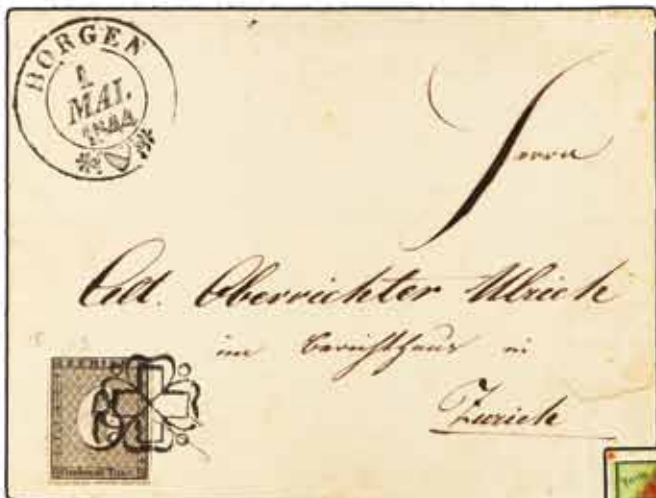 HORGEN
MAI.
1844
Herrn
Alt. Oberrichter Ulrich
im Berichthaus in
Zürich
ZÜRICH
Cantonal-Taxe